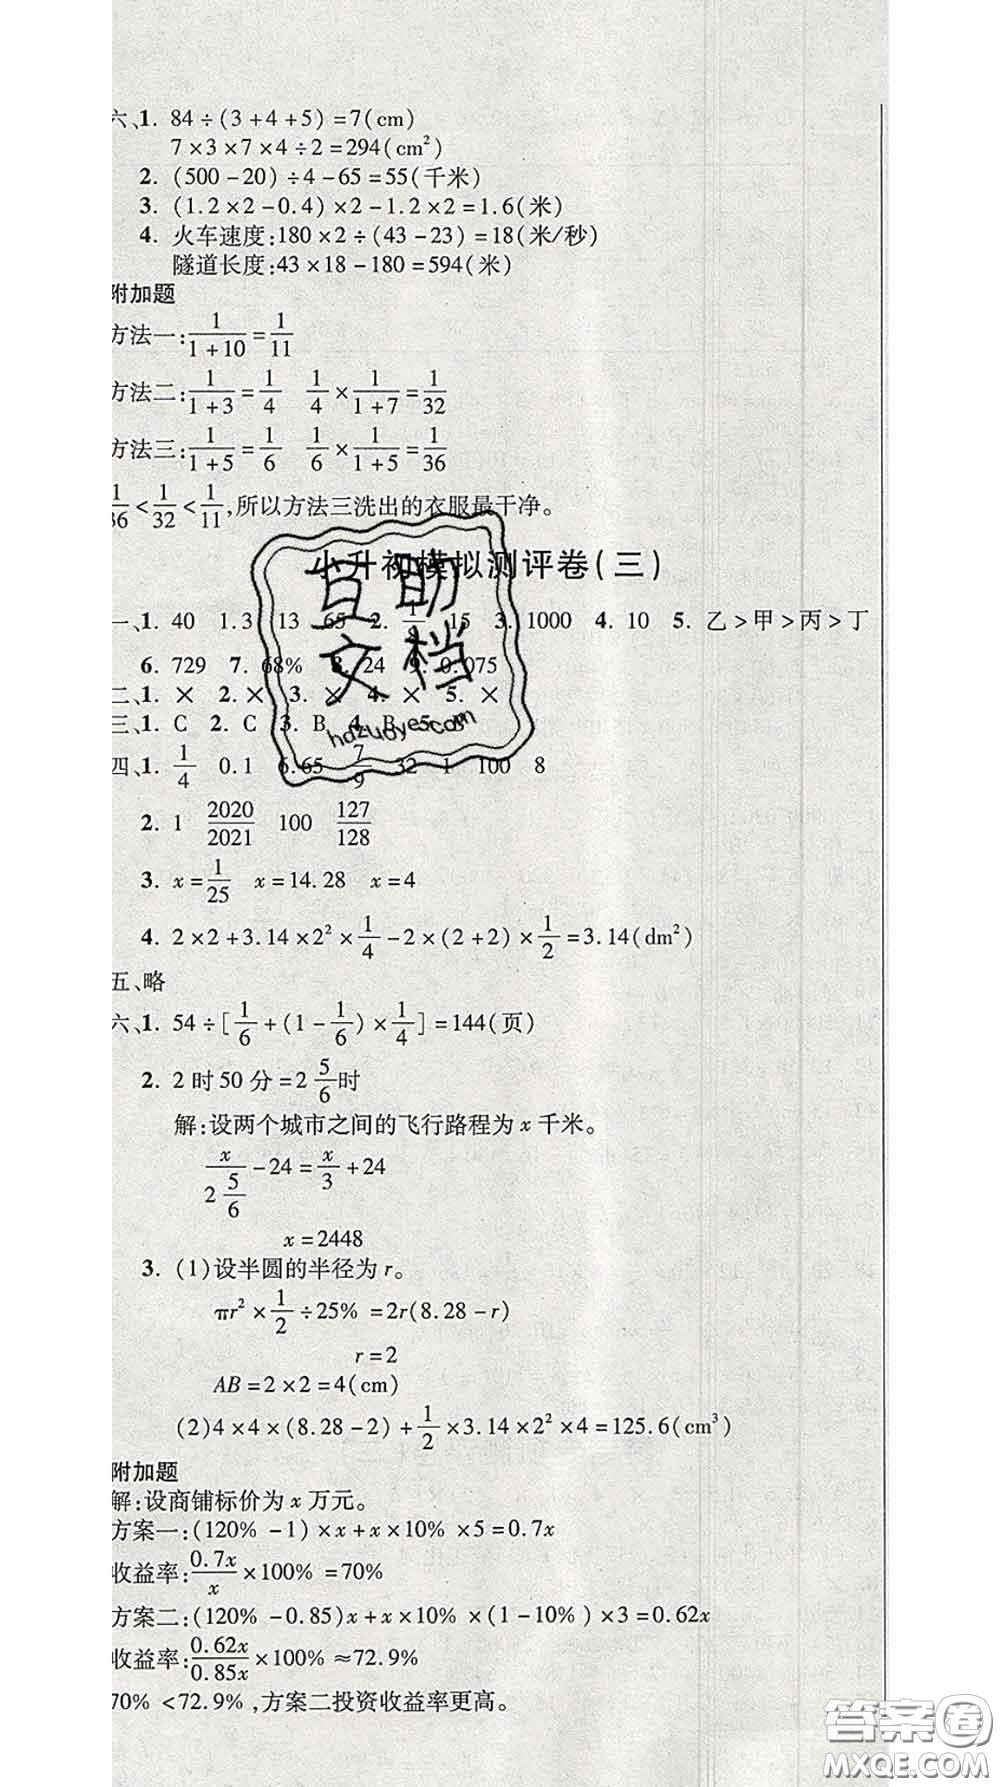 六、1. 84÷(3+4+5)=7(cm)
7×3×7×4÷2=294(cm²)
2. (500-20)÷4-65=55(千米)
3. (1.2×2-0.4)×2-1.2×2=1.6(米)
4. 火车速度:180×2÷(43-23)=18(米/秒)
隧道长度:43×18-180=594(米)
附加题
方法一:1/(1+10)=1/11
方法二:1/(1+3)=1/4 1/4×1/(1+7)=1/32
方法三:1/(1+5)=1/6 1/6×1/(1+5)=1/36
1/36<1/32<1/11,所以方法三洗出的衣服最干净。
小升初模拟测评卷(三)
一、1. 40 1.3 13 65 2. 1/8 15 3. 1000 4. 10 5. 乙>甲>丙>丁
6. 729 7. 68% 8. 24 9. 0.075
二、1. × 2. × 3. × 4. × 5. ×
三、1. C 2. C 3. B 4. B 5.
四、1. 1/4 0.1 6.65 7/9 32 1 100 8
2. 1 2020/2021 100 127/128
3. x=1/25 x=14.28 x=4
4. 2×2+3.14×2²×1/4-2×(2+2)×1/2=3.14(dm²)
五、略
六、1. 54÷[1/6+(1-1/6)×1/4]=144(页)
2. 2时50分=2 5/6时
解:设两个城市之间的飞行路程为x千米。
x/(2 5/6)-24=x/3+24
x=2448
3. (1)设半圆的半径为r。
πr²×1/2÷25%=2r(8.28-r)
r=2
AB=2×2=4(cm)
(2)4×4×(8.28-2)+1/2×3.14×2²×4=125.6(cm³)
附加题
解:设商铺标价为x万元。
方案一:(120%-1)×x+x×10%×5=0.7x
收益率:0.7x/x×100%=70%
方案二:(120%-0.85)x+x×10%×(1-10%)×3=0.62x
收益率:0.62x/0.85x×100%≈72.9%
70%<72.9%,方案二投资收益率更高。
互助
文档
hdzuoye.com
答案卷
MXQE.COM